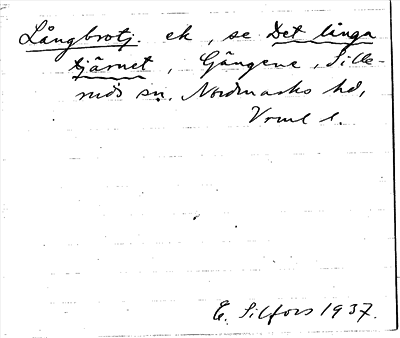 Långbrotj. ek, se Det långa
tjärnet, Gängene, Sille-
ruds sn, Nordmarks hd,
Vrml l.
E. Silfors 1937.